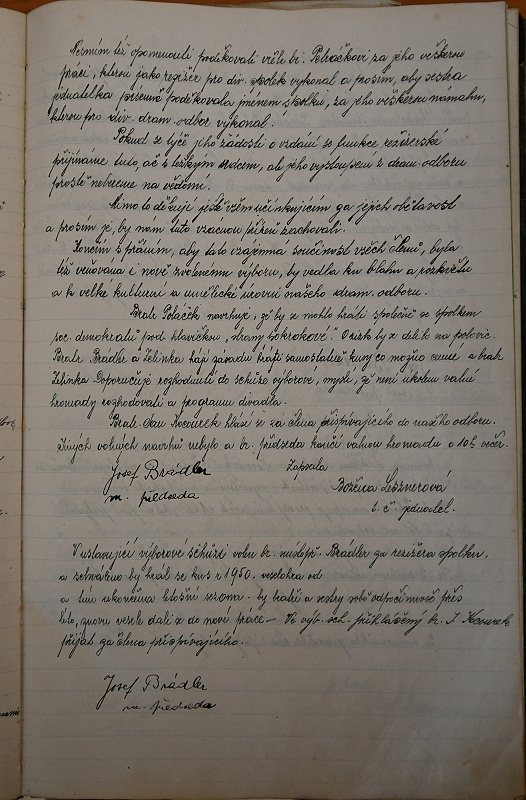 Nesmím též opomenouti poděkovati vřele br. Petráčkovi za jeho veškerou
práci, kterou jako režisér pro div. spolek vykonal a prosím, aby sestra
jednatelka písemně poděkovala jménem spolku, za jeho veškerou námahu,
kterou pro div. dram. odbor vykonal.
Pokud se týče jeho žádosti o vzdání se funkce režisérské
přijímáme tuto, ač s těžkým srdcem, ale jeho vystoupení z dram. odboru
prostě nebereme na vědomí.
Mimo to děkuji ještě všem účinkujícím za jejich obětavost
a prosím je, by nám tuto vzácnou přízeň zachovali.
Končím s přáním, aby tato vzájemná součinost všech členů, byla
též věnována i nově zvolenému výboru, by vedla ku blahu a rozkvětu
a k velké kulturní a umělecké úrovni našeho dram. odboru.
Bratr Poláček navrhuje, že by se mohlo hráti společně se spolkem
soc. demokratů pod hlavičkou, by z dělilo na polovic.
Bratr Brádler a Zelinka hájí zásadu hráti samostatně kusy co možno cenné a bratr
Zelinka Doporučuje rozhodnutí do schůze výborové, myslí, že není úkolem valné
hromady rozhodovati o programu divadla.
Bratr Jan Kocourek hlásí se za člena přispívajícího do našeho odboru.
Jiných volných návrhů nebylo a br. předseda končí valnou hromadu o 10h večer.
Josef Brádler Zapsala
m. předseda Božena Lesznerová
t. č. jednatel.
V ustavující výborové schůzi volen br. místopř. Brádler za režiséra spolku,
a schváleno by hrál se kus r 1950. veselohra od
a tím ukončena letošní sezona - by bratři a sestry měli odpočinouti přes
léto, znovu vešli dále do nové práce - Ve výb. sch. přihlášený br. J. Kocourek
přijat za člena přispívajícího.
Josef Brádler
m. předseda